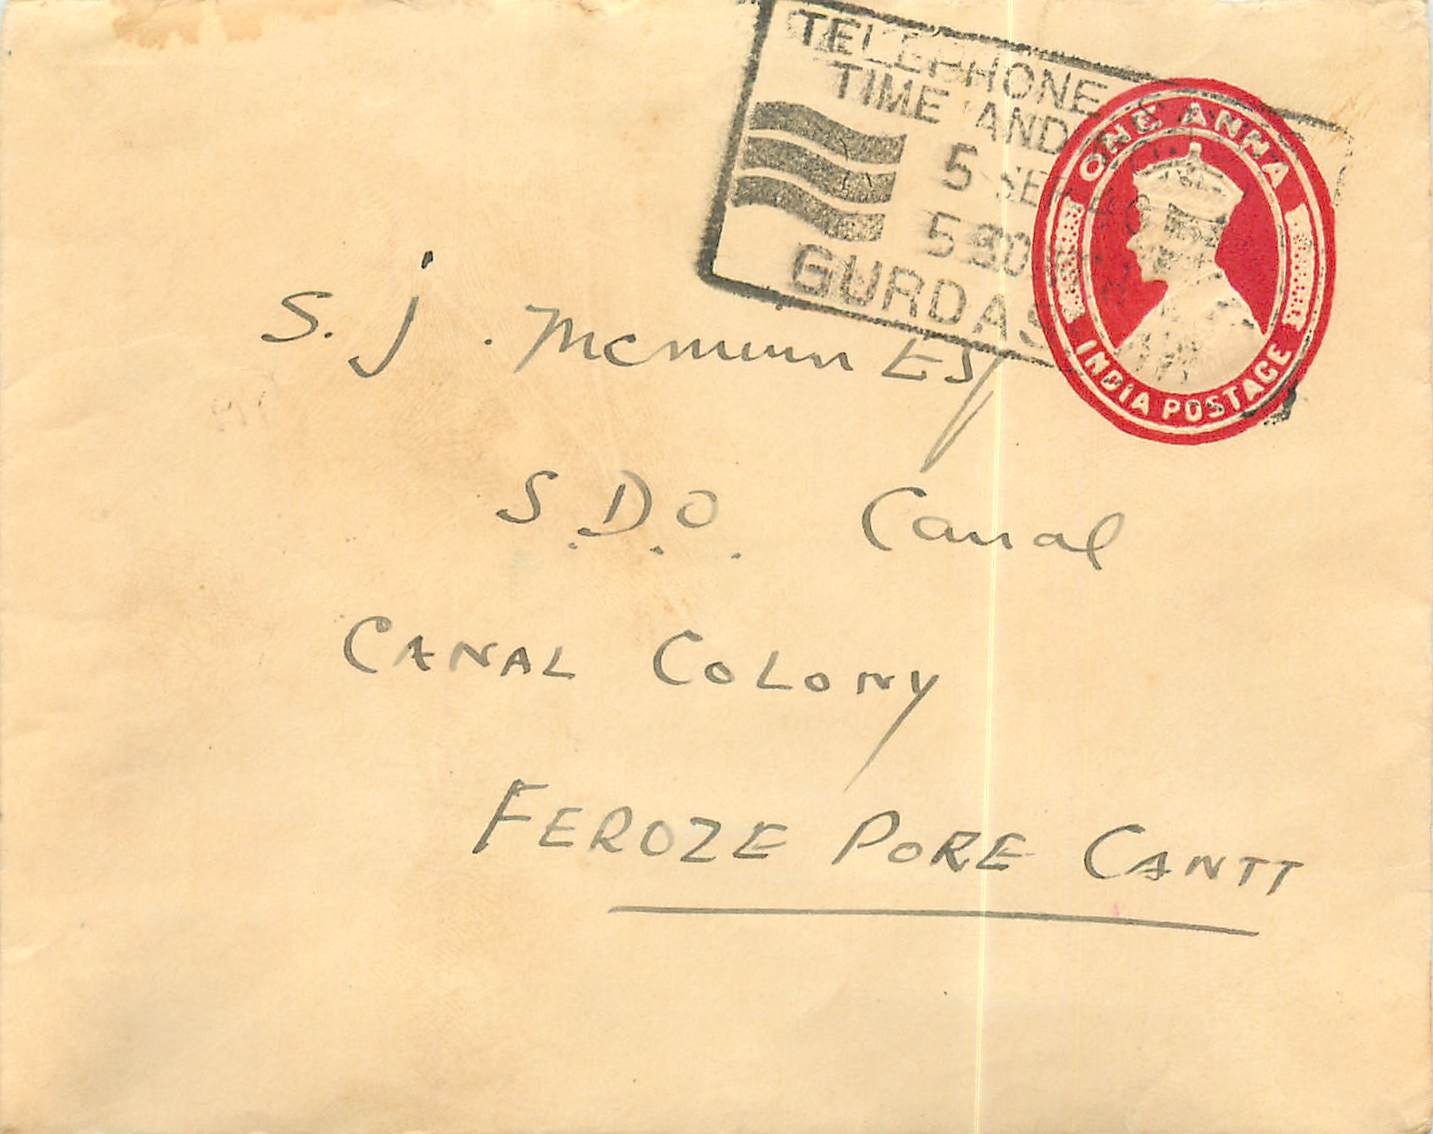 TELEPHONE &
TIME AND
5 SEP
5 30
GURDAS
ONE ANNA
INDIA POSTAGE
S. J. McMunn Esq
S.D.O. Canal
CANAL COLONY
FEROZE PORE CANTT